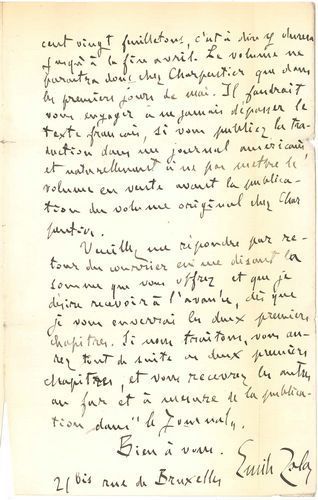 cent vingt feuilletons, c'est à dire y durera
jusqu'à la fin avril. Le volume ne
paraîtra donc chez Charpentier que dans
les premiers jours de mai. Il faudrait
vous engager à ne jamais dépasser le
texte français, si vous publiez la tra-
duction dans un journal américain,
et naturellement à ne pas mettre le
volume en vente avant la publica-
tion du volume original chez Char
pentier.
Veuillez me répondre par re-
tour du courrier en me disant la
somme que vous offrez, et que je
désire recevoir à l'avance, dès que
je vous enverrai les deux premiers
chapitres. Si nous traitons, vous au-
rez tout de suite ces deux premiers
chapitres, et vous recevrez les autres
au fur et à mesure de la publica-
tion dans "le Journal".
Bien à vous.
Emile Zola
21 bis rue de Bruxelles